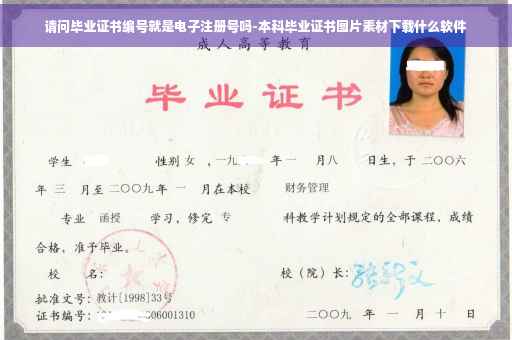 请问毕业证书编号就是电子注册号吗-本科毕业证书图片素材下载什么软件
成人高等教育
毕业证书
学生 性别 女 ，一九 年 一 月八 日生，于 二〇〇六
年 三 月至 二〇〇九 年 一 月在本校 财务管理
专业 函授 学习，修完 专 科教学计划规定的全部课程，成绩
合格，准予毕业。
校 名： 校（院）长：
批准文号：教计[1998]33号
证书编号： 06001310 二〇〇九 年 一 月 十 日